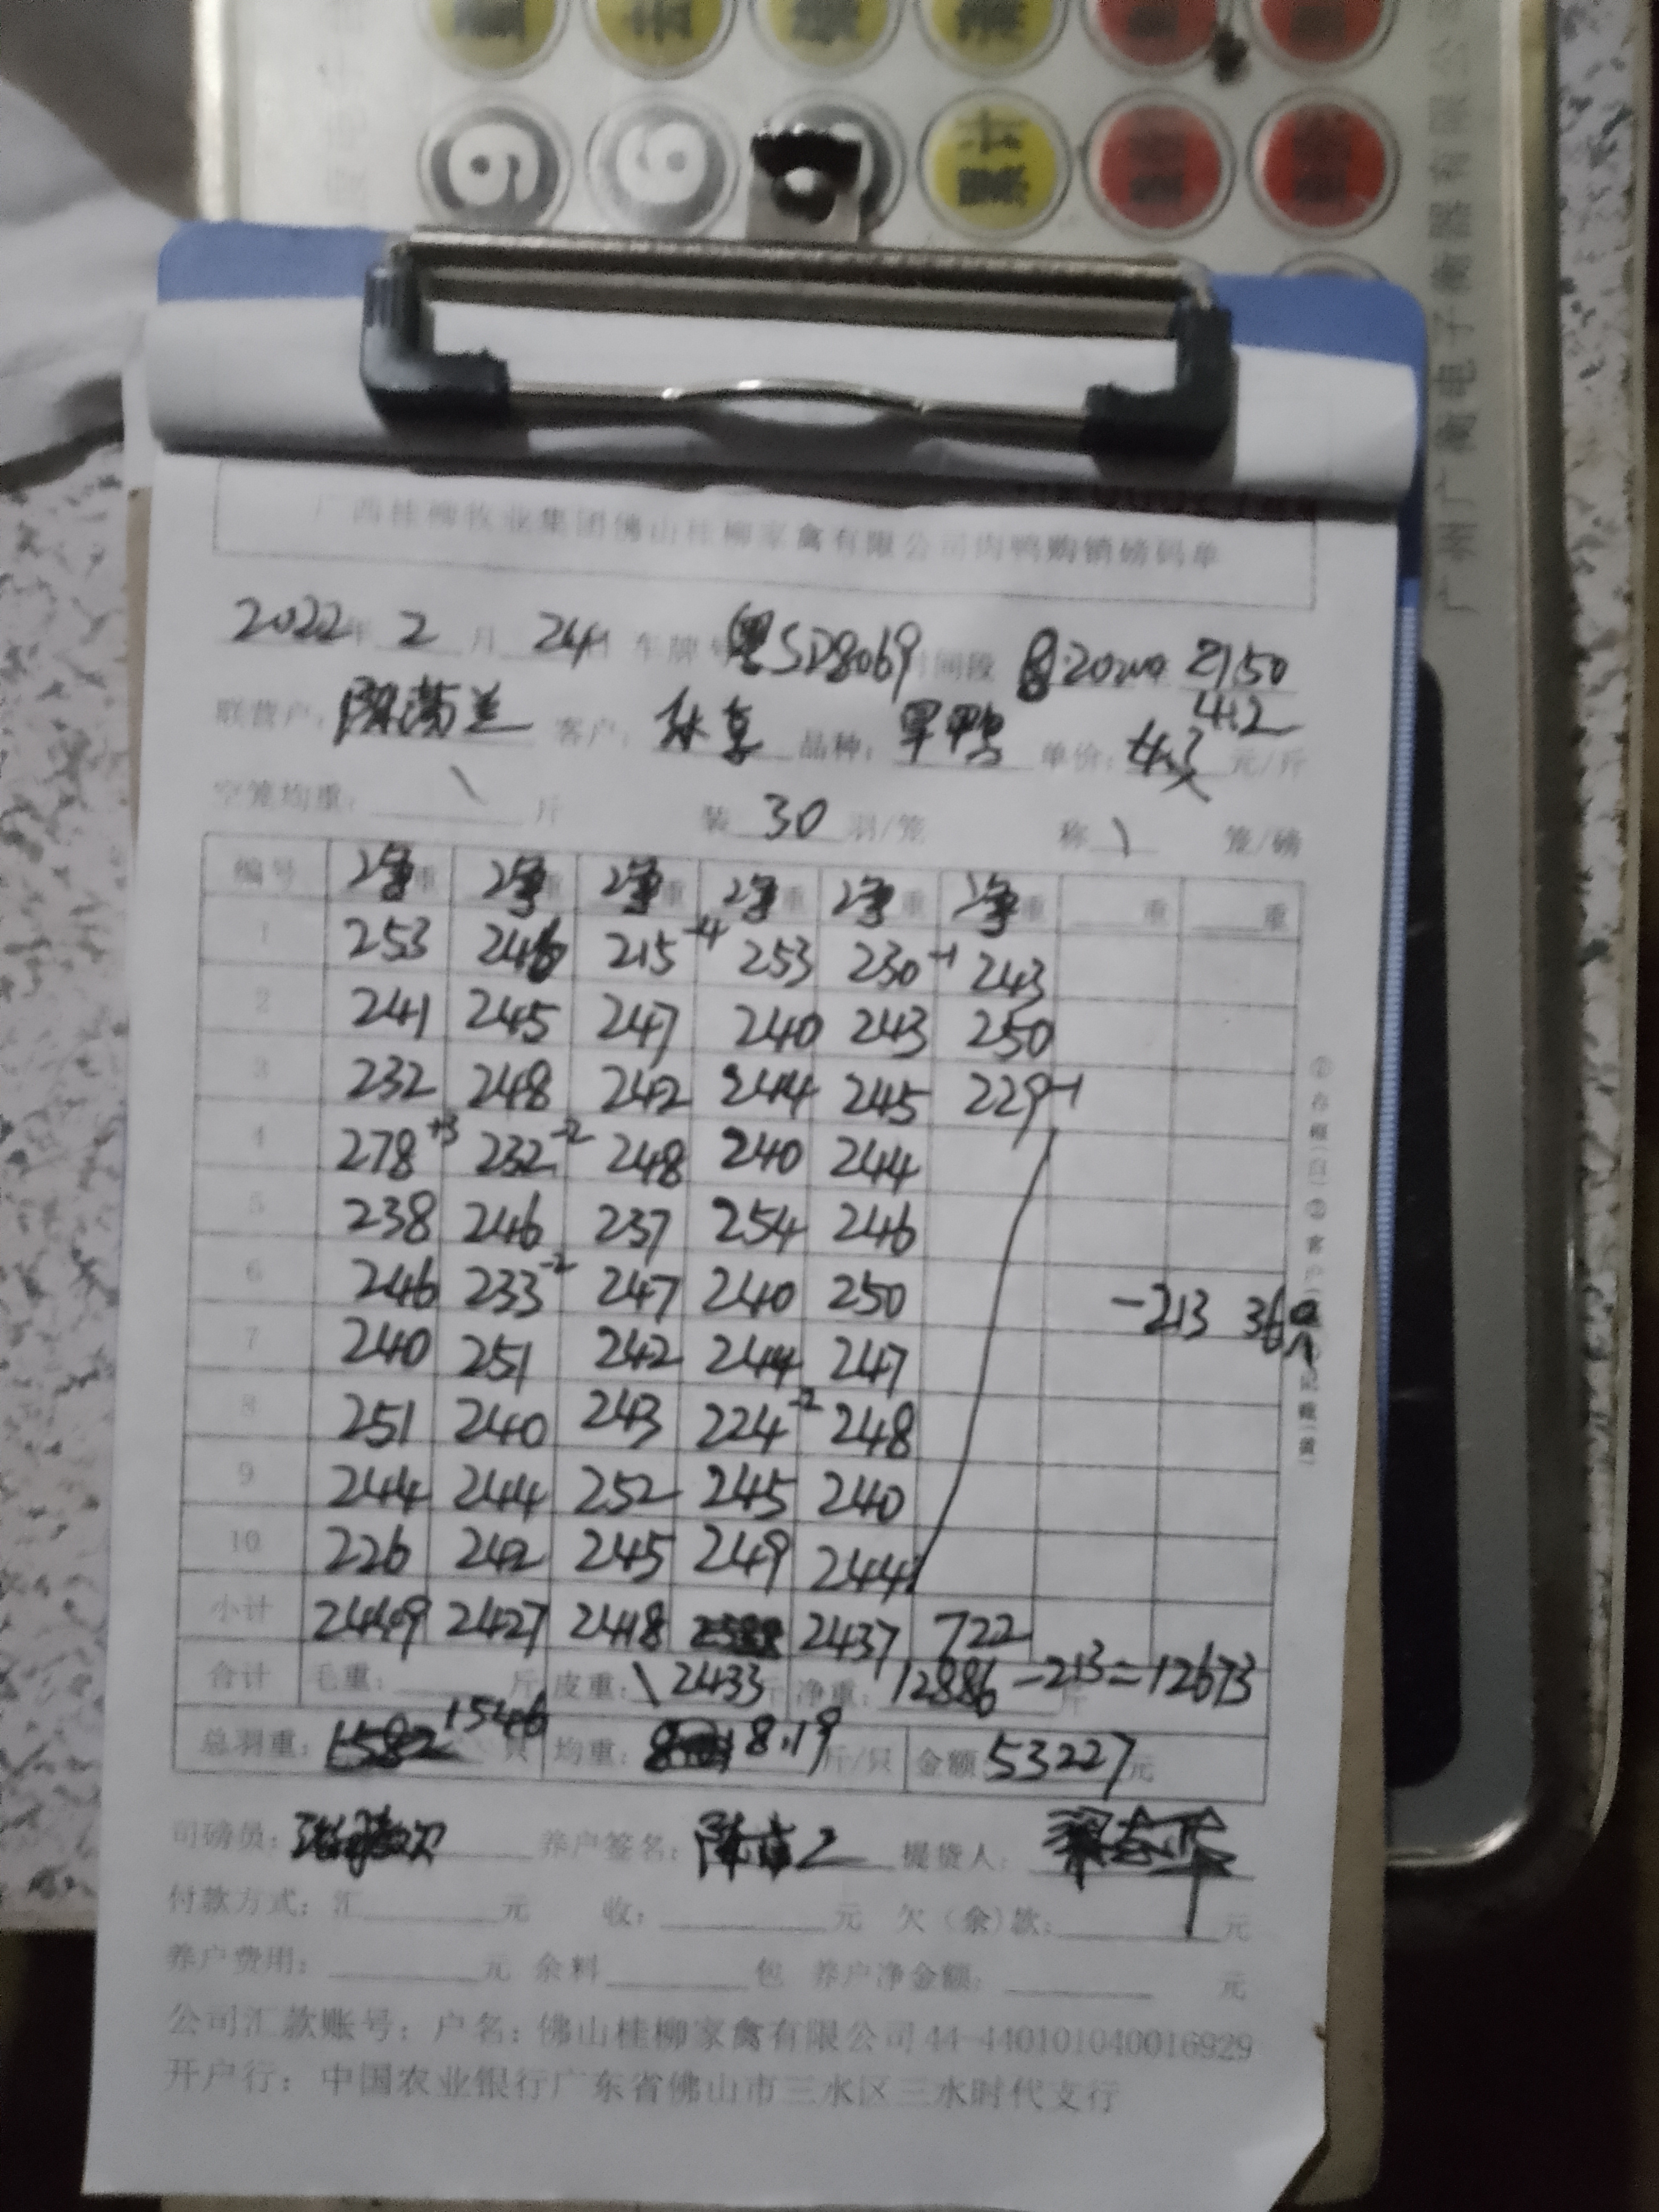 广州广衡电子衡器有限公司
广西桂柳牧业集团佛山桂柳家禽有限公司肉鸭购销磅码单
2022年 2 月 24日 车牌号 粤SD8069 时间段 21:50
4.2
联营户: 客户: 品种: 单价: 元/斤
空笼均重: \ 斤 装 30 羽/笼 称 \ 笼/磅
编号 净重 净重 净重 净重 净重 净重 重 重
1 253 246 215 -4 253 230 -1 243
2 241 245 247 240 243 250
3 232 248 242 244 245 229 -1
4 278 +3 232 -2 248 240 244
5 238 246 237 254 246
6 246 233 -2 247 240 250 -213 36只
7 240 251 242 244 247
8 251 240 243 224 -2 248
9 244 244 252 245 240
10 226 242 245 249 244
小计 2449 2427 2418 2437 722
合计 毛重: 斤 皮重: \ 2433 斤 净重: 12886 -213=12673 斤
总羽重: 1546 只 均重: 8.19 斤/只 金额 53227 元
司磅员: 养户签名: 提货人:
付款方式: 汇 元 收: 元 欠(余)款: 元
养户费用: 元 余料 包 养户净金额: 元
公司汇款账号: 户名: 佛山桂柳家禽有限公司 44-440101040016929
开户行: 中国农业银行广东省佛山市三水区三水时代支行